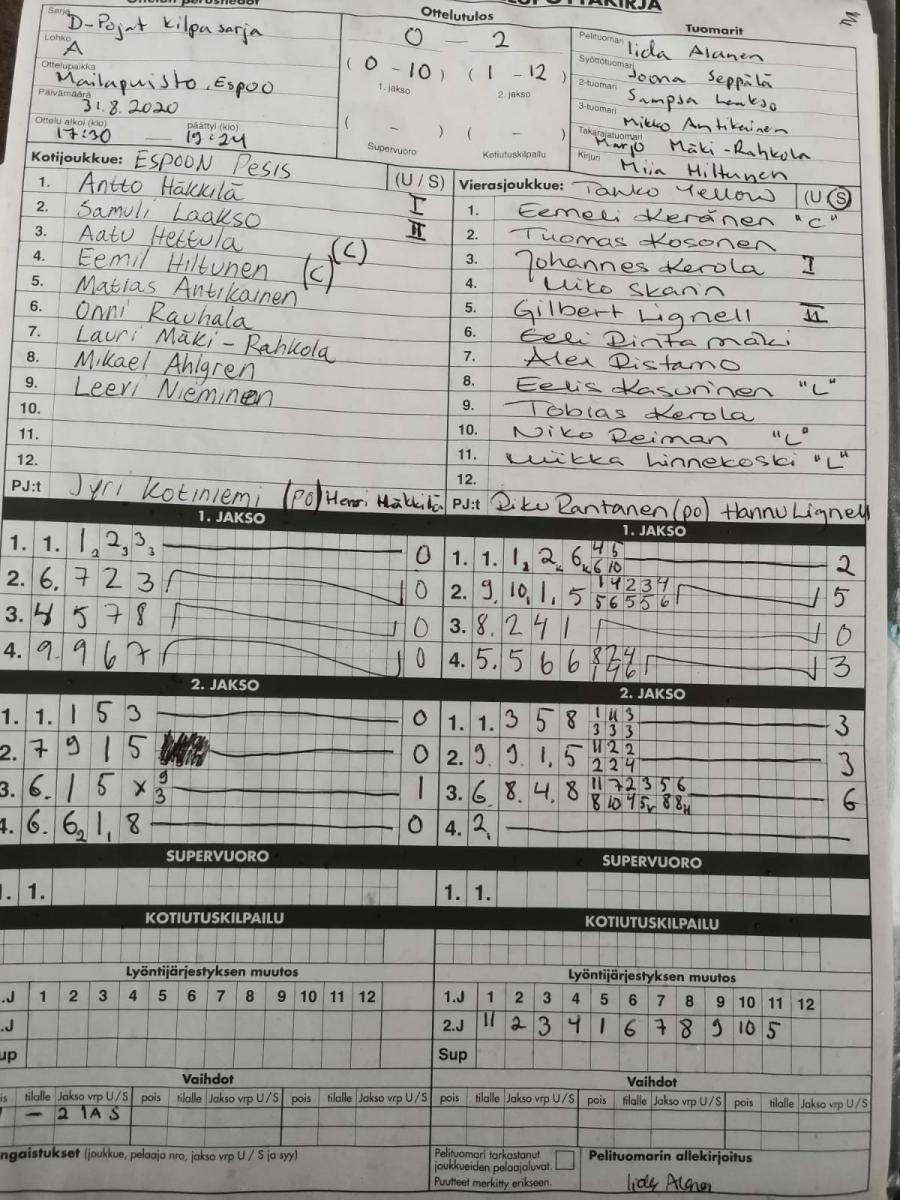 Sarja D-Pojat Kilpasarja
Lohko A
Ottelupaikka Mailapuisto, Espoo
Päivämäärä 31.8.2020
Ottelu alkoi (klo) 17:30 päättyi (klo) 19:24
Ottelutulos
0 - 2
(0 - 10) (1 - 12)
1. jakso 2. jakso
( - ) ( - )
Supervuoro Kotiutuskilpailu
Tuomarit
Pelituomari Iida Alanen
Syöttötuomari Joona Seppälä
2-tuomari Sampsa Laakso
3-tuomari Mikko Antikainen
Takarajatuomari Marjo Mäki-Rahkola
Kirjuri Miia Hiltunen
Kotijoukkue: ESPOON PESIS (U / S)
1. Antto Häkkilä I
2. Samuli Laakso II
3. Aatu Hettula (C)
4. Eemil Hiltunen (C)
5. Matias Antikainen
6. Onni Rauhala
7. Lauri Mäki-Rahkola
8. Mikael Ahlgren
9. Leevi Nieminen
10.
11.
12.
PJ:t Jyri Kotiniemi (PO) Henri Häkkilä
Vierasjoukkue: Tahko Yellow (U S)
1. Eemeli Keränen "C"
2. Tuomas Kosonen
3. Johannes Kerola I
4. Miko Skarin
5. Gilbert Lignell II
6. Eeli Rintamäki
7. Alex Ristamo
8. Eelis Kasurinen "L"
9. Tobias Kerola
10. Niko Reiman "L"
11. Miikka Linnekoski "L"
12.
PJ:t Riku Rantanen (po) Hannu Lignell
1. JAKSO
1. 1. 1 2 2 3 3 3 0
2. 6. 7 2 3 0
3. 4 5 7 8 0
4. 9. 9 6 7 0
2. JAKSO
1. 1. 1 5 3 0
2. 7 9 1 5 0
3. 6. 1 5 x 9 3 1
4. 6. 6 2 1, 8 0
SUPERVUORO
1. 1.
KOTIUTUSKILPAILU
Lyöntijärjestyksen muutos
.J 1 2 3 4 5 6 7 8 9 10 11 12
.J
up
Vaihdot
is tilalle Jakso vrp U / S pois tilalle Jakso vrp U / S pois tilalle Jakso vrp U / S
- 2 1A S
ngaistukset (joukkue, pelaaja nro, jakso vrp U / S ja syy)
1. JAKSO
1. 1. 1, 2 6 4 5 6 10 2
2. 9. 10, 1, 5 1 4 2 3 4 5 6 5 5 6 5
3. 8. 2 4 1 0
4. 5. 5 6 6 8 2 4 1 4 6 3
2. JAKSO
1. 1. 3 5 8 1 11 3 3 3 3 3
2. 9. 9 1, 5 11 2 2 2 2 4 3
3. 6. 8. 4. 8 11 7 2 3 5 6 8 10 4 5 8 8 6
4. 2.
SUPERVUORO
1. 1.
KOTIUTUSKILPAILU
Lyöntijärjestyksen muutos
1.J 1 2 3 4 5 6 7 8 9 10 11 12
2.J 11 2 3 4 1 6 7 8 9 10 5
Sup
Vaihdot
pois tilalle Jakso vrp U / S pois tilalle Jakso vrp U / S pois tilalle Jakso vrp U / S
Pelituomari tarkastanut
joukkueiden pelaajaluvat.
Puutteet merkitty erikseen.
Pelituomarin allekirjoitus
Iida Alanen